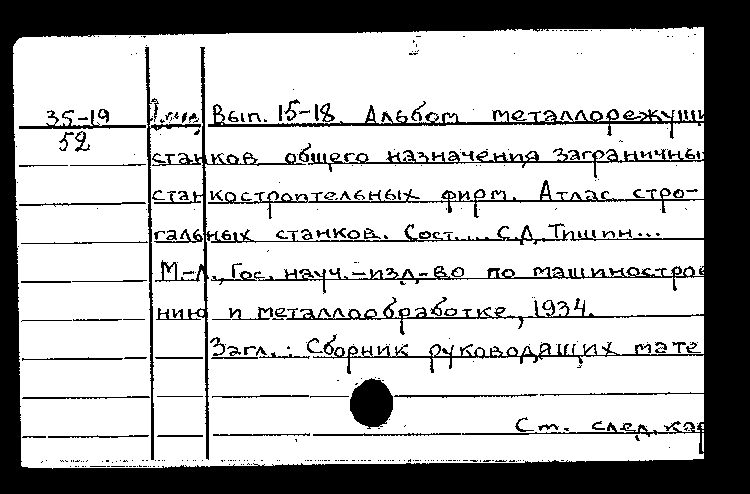 35-19 Вып. 15-18. Альбом металлорежущи
52
станков общего назначения заграничны
станкостроительных фирм. Атлас стро-
гальных станков. Сост... С.Д. Тишин...
М.-Л., Гос. науч.-изд-во по машинострое
нию и металлообработке, 1934.
Загл.: Сборник руководящих мате
См. след. кар